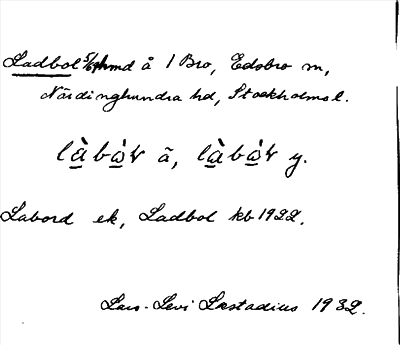 Ladbol 5/24 hmd å 1 Bro, Edsbro sn,
Närdinghundra hd, Stockholms l.
là̱bò̱ꞎ ä, là̱bò̱ꞎ y.
Labord ek, Ladbol kb 1922.
Lars-Levi Læstadius 1932.